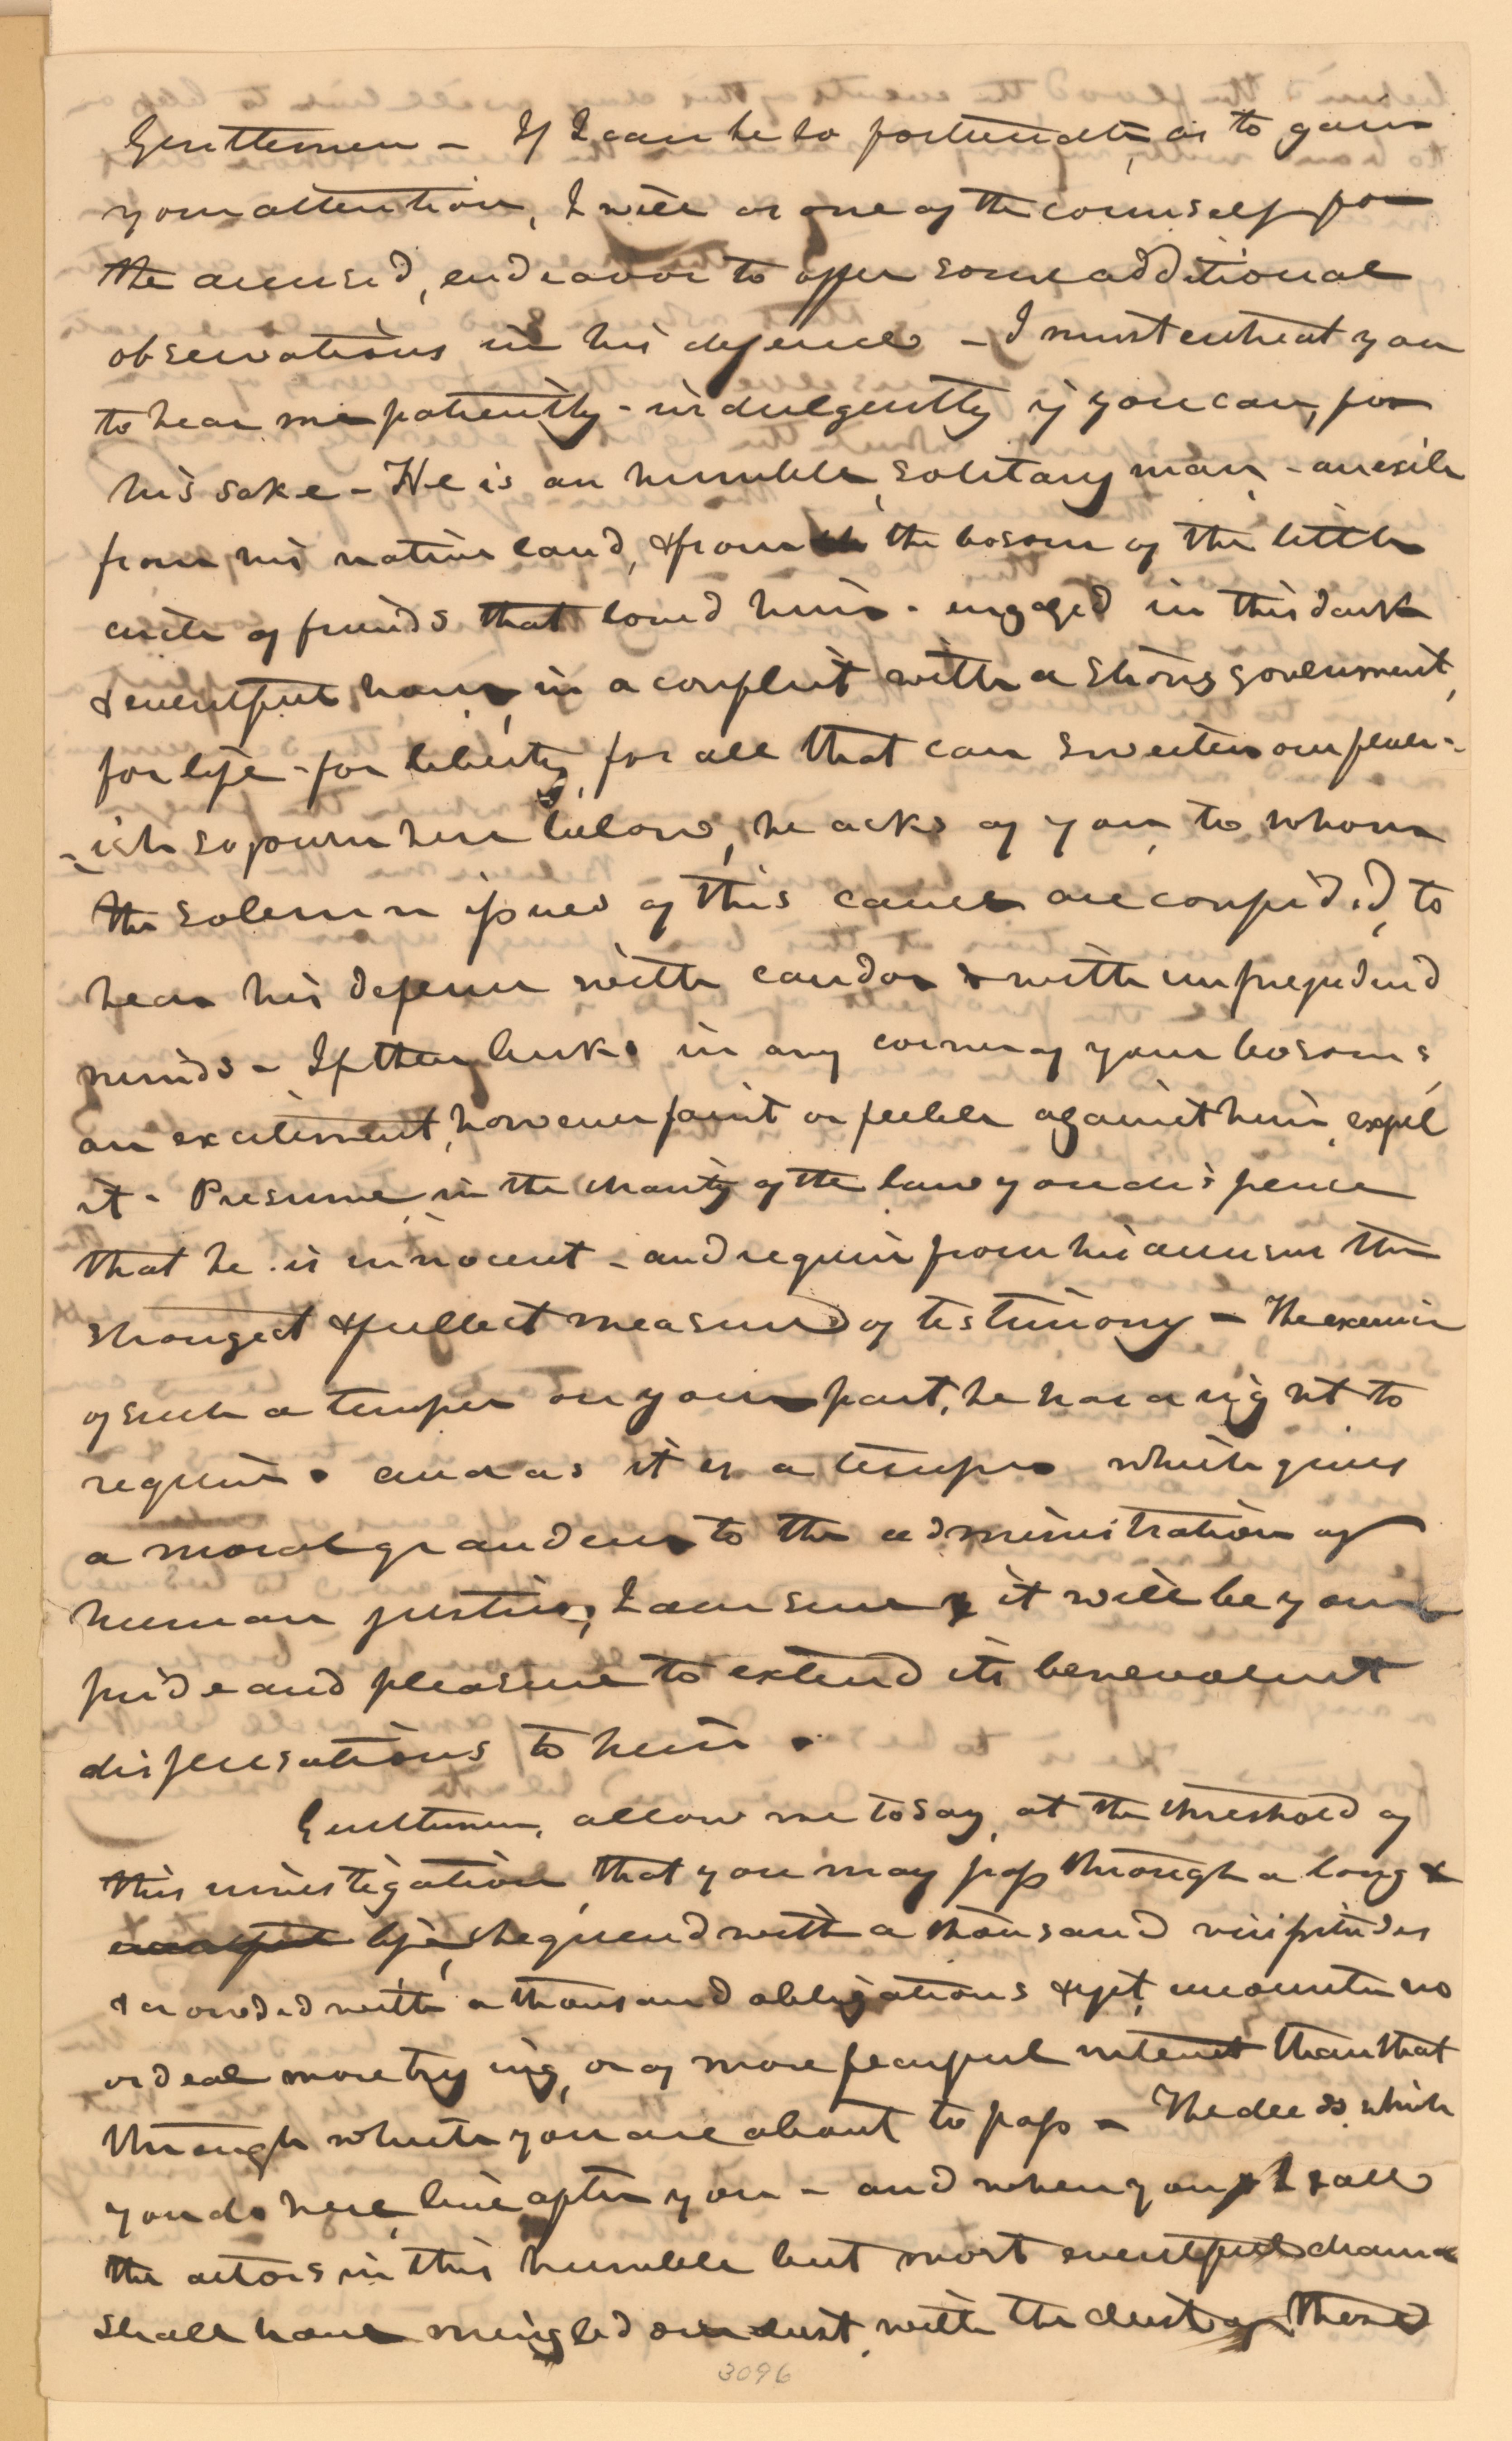 Gentlemen - If I can be so fortunate, as to gain
your attention, I will as one of the counself for
the accused, endeavor to offer some additional
observations in his defence - I must entreat you
to hear me patiently - indulgently if you can, for
his sake - He is an humble, solitary man, - an exile
from his native land, & from the bosom of the little
circle of friends that loved him - engaged in this dark
& eventful hour, in a conflict with a strong government,
for life - for liberty, for all that can sweeten our fever-
-ish sojourn here below, he asks of you, to whom
the solemn issues of this cause are confided, to
hear his defence with candor & with unprejudiced
minds - If there lurks in any corner of your bosoms,
an excitement, however faint or feeble against him, expel
it - Presume, in the charity of the law you dispense
that he is innocent - and require from his accuser the
strongest & fullest measure of testimony - The exercise
of such a temper on your part, he has a right to
require. and as it is a temper which gives
a moral grandeur to the administration of
human justice, I am sure it will be your
pride and pleasure to extend its benevolent
dispensations to him.
Gentlemen, allow me to say, at the threshold of
this investigation, that you may pass through a long &
eventful life, chequered with a thousand vicissitudes
& crowded with a thousand obligations & yet, encounter no
ordeal more trying, or of more fearful interest than that
through which you are about to pass - The deeds which
you do here, live after you - and when you & I & all
the actors in this humble but most eventful drama
shall have mingled our dust, with the dust of those
3096